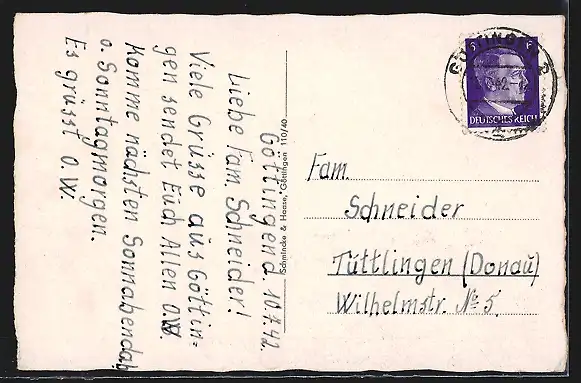 Göttingen d. 10.7.42.
Liebe Fam. Schneider!
Viele Grüsse aus Göttin=
gen sendet Euch Allen O.W.
Komme nächsten Sonnabendab
o. Sonntagmorgen.
Es grüsst O.W.
Schmincke & Haase, Göttingen 110/40
GÖTTINGEN 2
42
6
DEUTSCHES REICH
Fam.
Schneider
Tüttlingen (Donau)
Wilhelmstr. № 5.